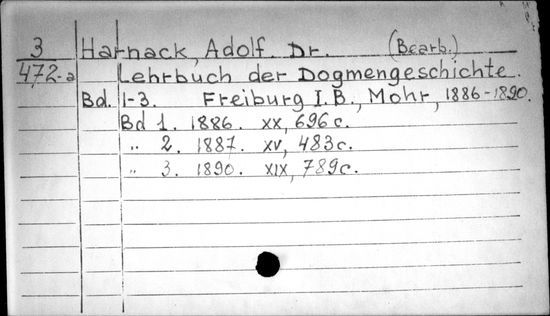 3 Harnack, Adolf. Dr. (Bearb.)
472-a Lehrbuch der Dogmengeschichte.
Bd. 1-3. Freiburg I. B., Mohr, 1886-1890.
Bd 1. 1886. xx, 696 c.
,, 2. 1887. xv, 483 c.
,, 3. 1890. xix, 789 c.